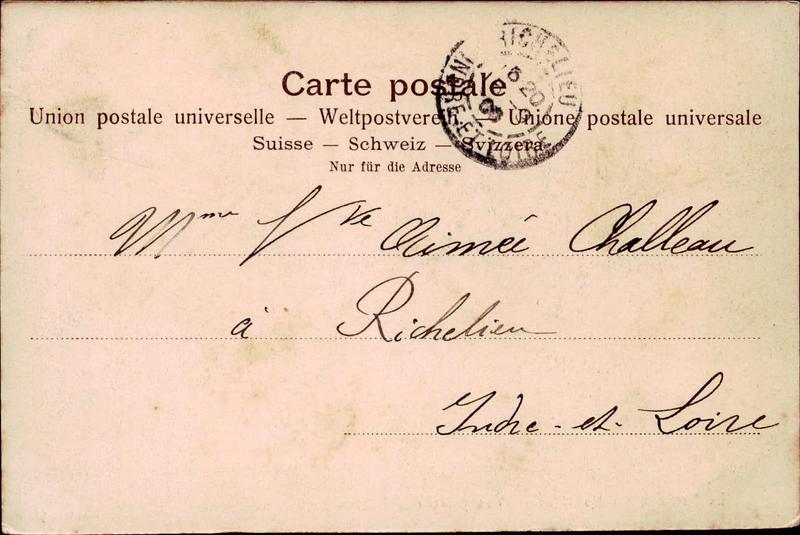 Carte postale
Union postale universelle — Weltpostverein — Unione postale universale
Suisse — Schweiz — Svizzera
Nur für die Adresse
RICHELIEU
INDRE-ET-LOIRE
Mme Vve Aimée Challeau
à Richelieu
Indre-et-Loire